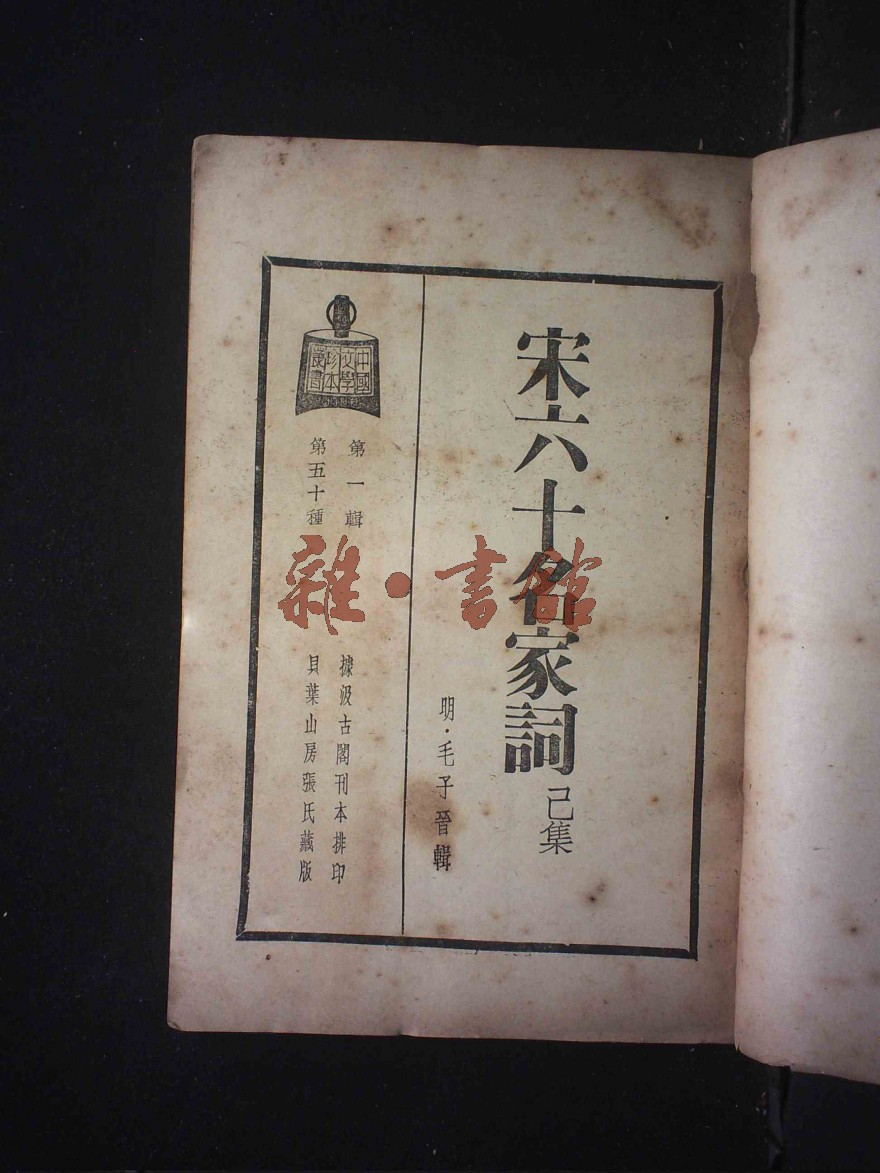 宋六十名家詞 己集
明·毛子晉輯
中國
文學
珍本
叢書
第一輯
第五十種
據汲古閣刊本排印
貝葉山房張氏藏版
雜·書館